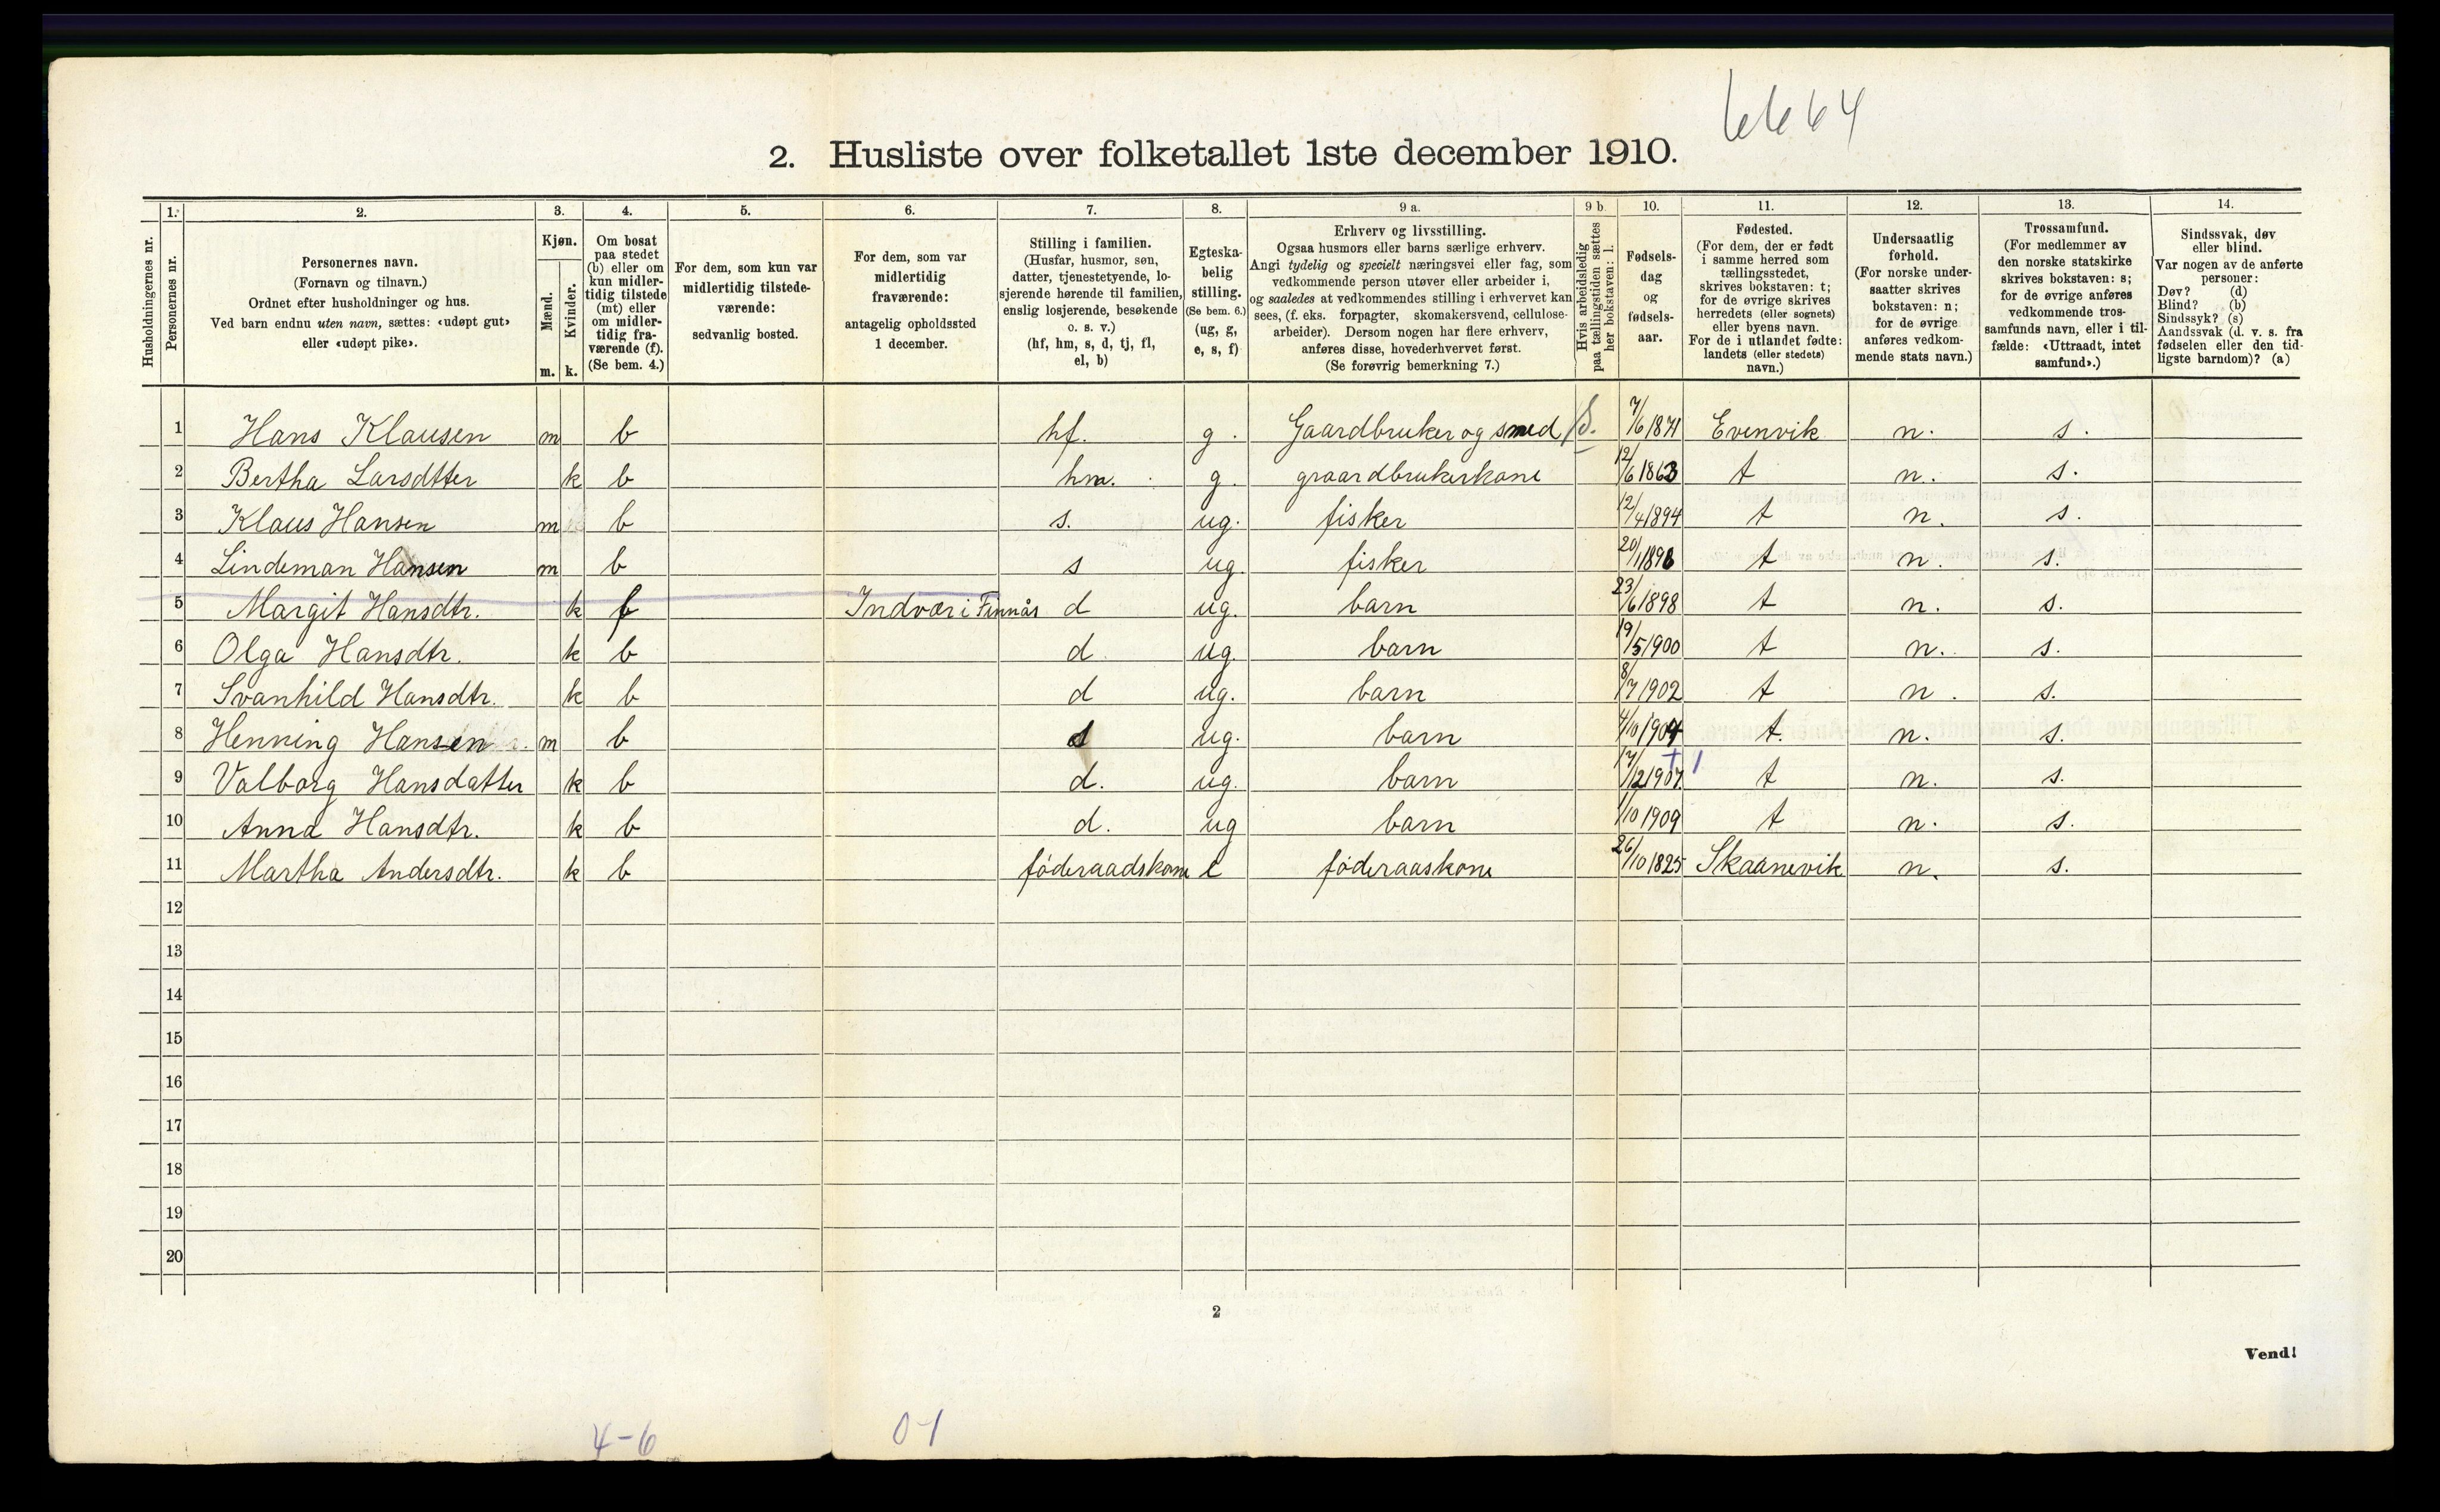 6664
2. Husliste over folketallet 1ste december 1910.
Husholdningernes nr.
1.
Personernes nr.
2.
Personernes navn.
(Fornavn og tilnavn.)
Ordnet efter husholdninger og hus.
Ved barn endnu uten navn, sættes: «udøpt gut»
eller «udøpt pike».
3.
Kjøn.
Mænd.
Kvinder.
m. k.
4.
Om bosat
paa stedet
(b) eller om
kun midler-
tidig tilstede
(mt) eller
om midler-
tidig fra-
værende (f).
(Se bem. 4.)
5.
For dem, som kun var
midlertidig tilstede-
værende:
sedvanlig bosted.
6.
For dem, som var
midlertidig
fraværende:
antagelig opholdssted
1 december.
7.
Stilling i familien.
(Husfar, husmor, søn,
datter, tjenestetyende, lo-
sjerende hørende til familien,
enslig losjerende, besøkende
o. s. v.)
(hf, hm, s, d, tj, fl,
el, b)
8.
Egteska-
belig
stilling.
(Se bem. 6.)
(ug, g,
e, s, f)
9 a.
Erhverv og livsstilling.
Ogsaa husmors eller barns særlige erhverv.
Angi tydelig og specielt næringsvei eller fag, som
vedkommende person utøver eller arbeider i,
og saaledes at vedkommendes stilling i erhvervet kan
sees, (f. eks. forpagter, skomakersvend, cellulose-
arbeider). Dersom nogen har flere erhverv,
anføres disse, hovederhvervet først.
(Se forøvrig bemerkning 7.)
9 b.
Hvis arbeidsledig
paa tællingstiden sættes
her bokstaven: l.
10.
Fødsels-
dag
og
fødsels-
aar.
11.
Fødested.
(For dem, der er født
i samme herred som
tællingsstedet,
skrives bokstaven: t;
for de øvrige skrives
herredets (eller sognets)
eller byens navn.
For de i utlandet fødte:
landets (eller stedets)
navn.)
12.
Undersaatlig
forhold.
(For norske under-
saatter skrives
bokstaven: n;
for de øvrige
anføres vedkom-
mende stats navn.)
13.
Trossamfund.
(For medlemmer av
den norske statskirke
skrives bokstaven: s;
for de øvrige anføres
vedkommende tros-
samfunds navn, eller i til-
fælde: «Uttraadt, intet
samfund».)
14.
Sindssvak, døv
eller blind.
Var nogen av de anførte
personer:
Døv? (d)
Blind? (b)
Sindssyk? (s)
Aandssvak (d. v. s. fra
fødselen eller den tid-
ligste barndom)? (a)
1 Hans Klausen m b hf. g. Gaardbruker og smed 7/6 1871 Evenvik n. s.
2 Bertha Larsdtter k b hm. g. graardbrukerkone 12/6 1863 t n. s.
3 Klaus Hansen m b s. ug. fisker 12/4 1894 t n. s.
4 Lindeman Hansen m b s ug. fisker 20/1 1896 t n. s.
5 Margit Hansdtr. k f Indvær i Finnås d ug. barn 23/6 1898 t n. s.
6 Olga Hansdtr. k b d ug. barn 19/5 1900 t n. s.
7 Svanhild Hansdtr. k b d ug. barn 8/7 1902 t n. s.
8 Henning Hansen m b s ug. barn 4/10 1904 t. n. s.
9 Valborg Hansdatter k b d. ug. barn 17/12 1907. t n. s.
10 Anna Hansdtr. k b d. ug barn 1/10 1909 t n. s.
11 Martha Andersdtr. k b föderaadskone e föderaaskone 26/10 1825 Skaanevik n. s.
12
13
14
15
16
17
18
19
20
2
Vend!
4-6 0-1